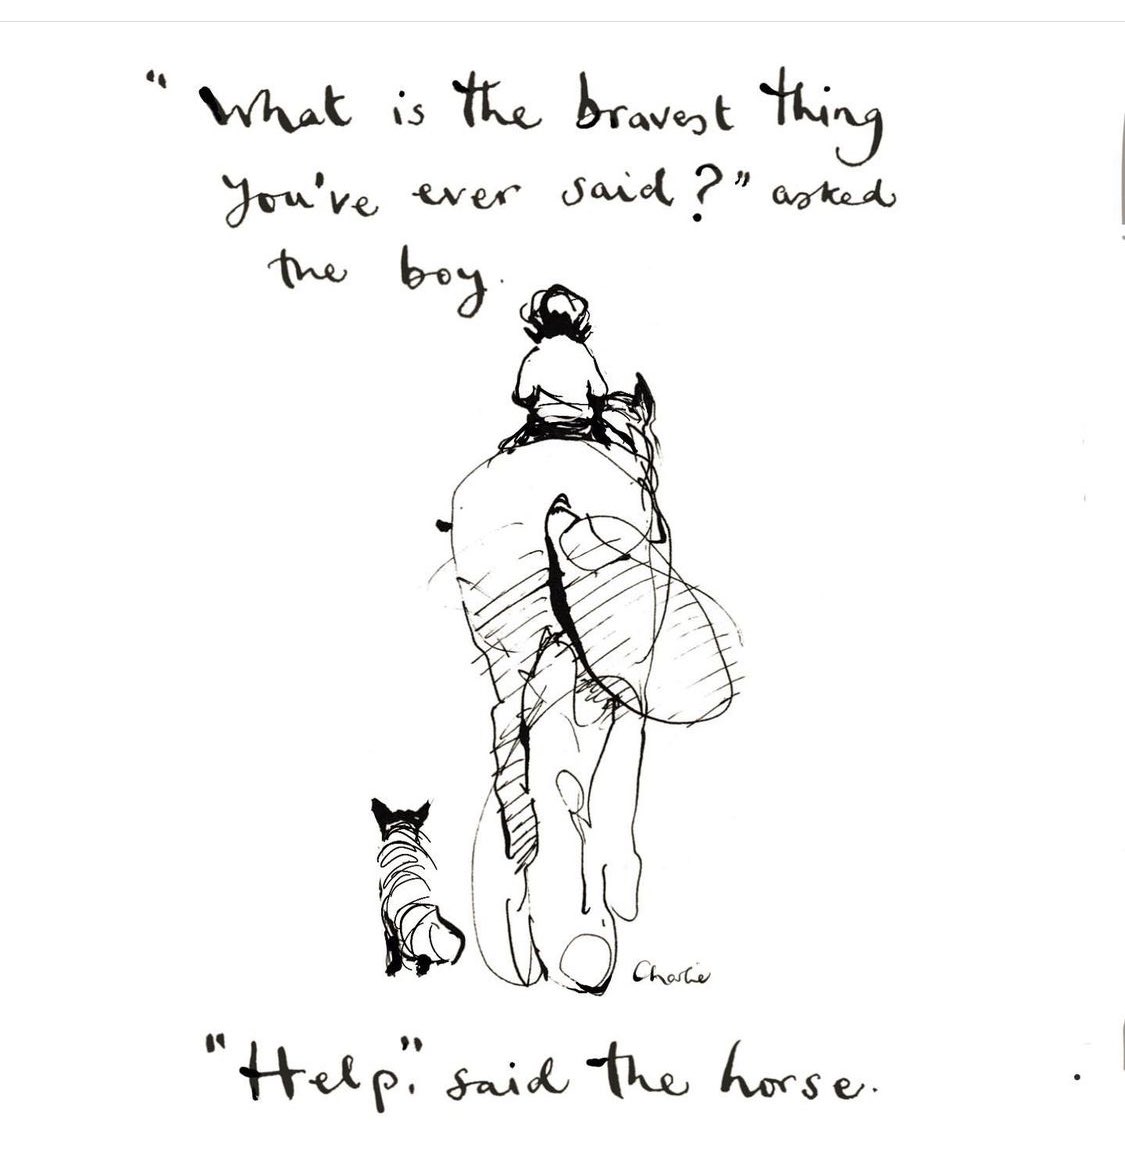 "What is the bravest thing
you've ever said?" asked
the boy.
Charlie
"Help." said the horse.